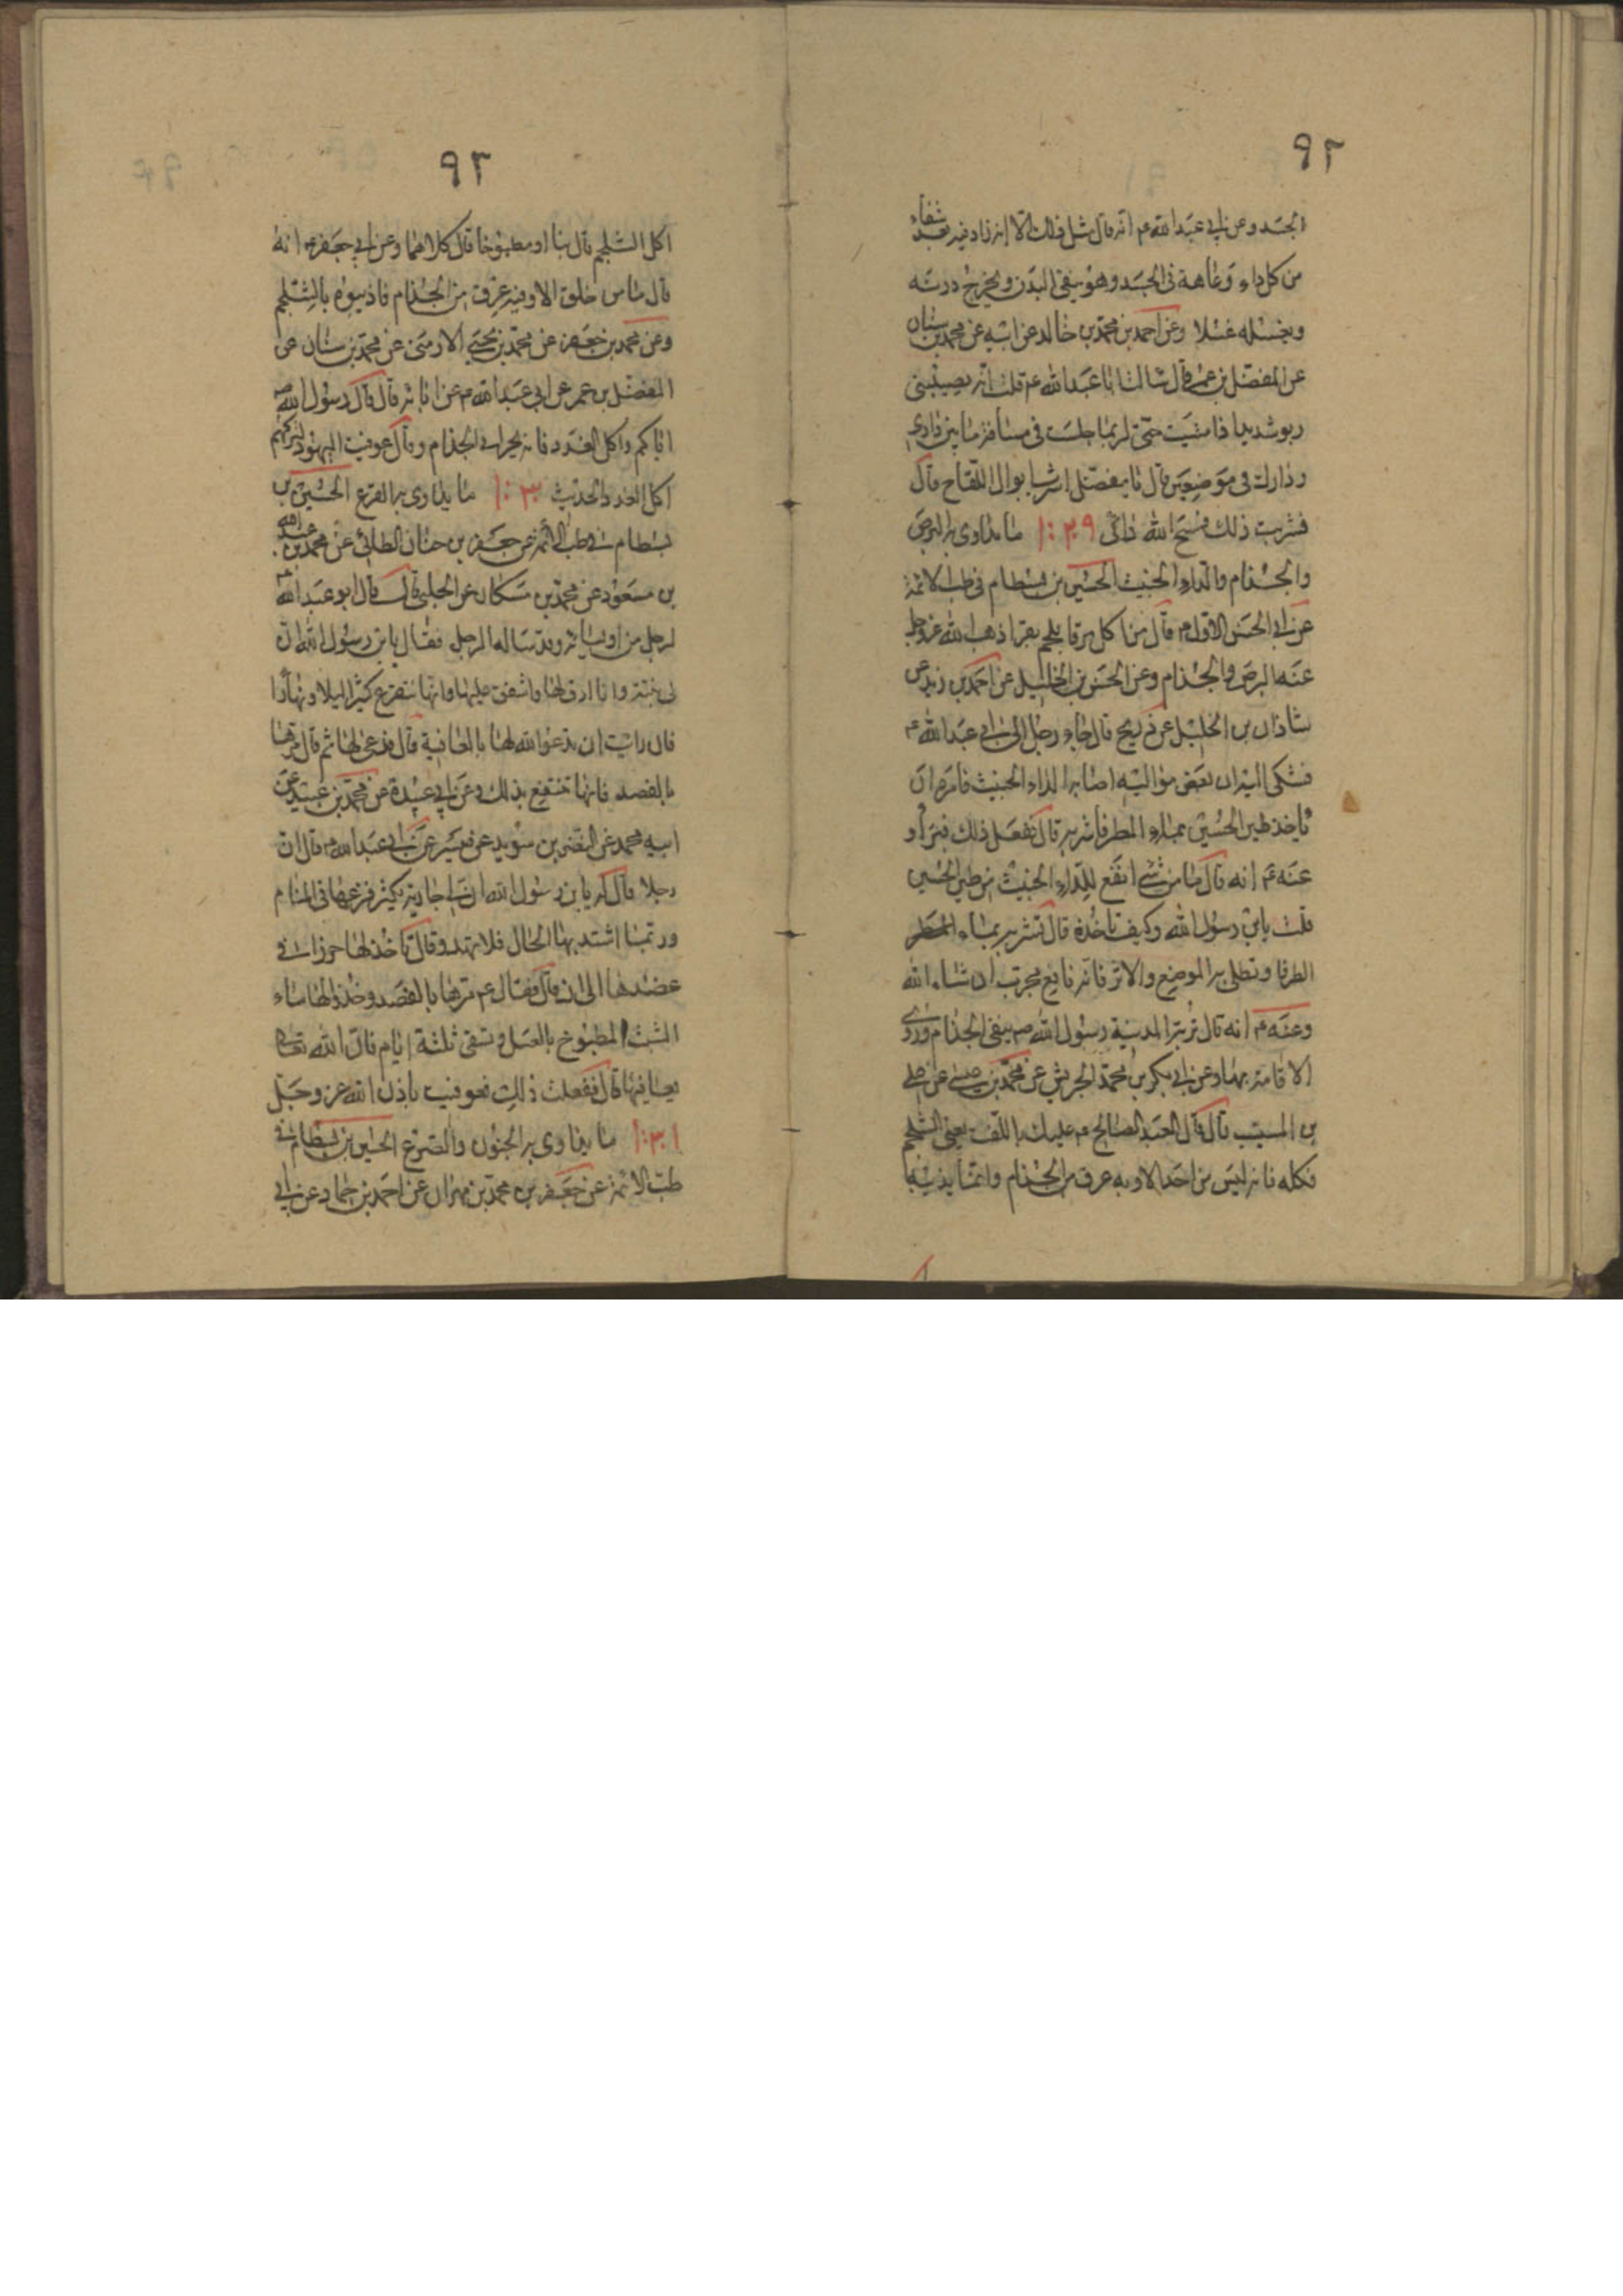 ٩٢
الجسد وعن ابي عبد الله ع انه قال مثل ذلك الا انه زاد فيه شفاء
من كل داء وعاهة في الجسد وهو ينقي البدن ويخرج درنه
ويغسله غسلا وعن احمد بن محمد بن خالد عن ابيه عن محمد بن سنان
عن المفضل بن عمر قال سالت ابا عبد الله ع قلت انه يصيبني
ربو شديد اذا مشيت حتى لربما جلست في مسافة ما بين داري
ودارك في موضعين قال يا مفضل اشرب ابوال اللقاح قال
فشربت ذلك فمسح الله دائي ١:٢٩ ما يداوي به البرص
والجذام والداء الخبيث الحسين بن بسطام في طب الائمة
عن ابي الحسن الاول ع قال من اكل مرقا بلحم بقر اذهب الله عز وجل
عنه البرص والجذام وعن الحسن بن الخليل عن احمد بن زيد عن
شاذان بن الخليل عن ذريح قال جاء رجل الى ابي عبد الله ع
فشكى اليه ان بعض مواليه اصابه الداء الخبيث فامره ان
ياخذ طين الحسين بماء المطر فاشربه قال ففعل ذلك فبرأ و
عنه ع انه قال ما من شيء انفع للداء الخبيث من طين الحسين
قلت يابن رسول الله وكيف ناخذه قال تشربه بماء المطر
الطرفا وتطلى به الموضع والاثر فانه نافع مجرب ان شاء الله
وعنه ع انه قال تربة المدينة رسول الله ص ينفي الجذام وروي
الاقامة بها وعن ابي بكر بن محمد الجريش عن محمد بن عيسى عن علي
بن المسيب قال قال العبد الصالح ع عليك باللفت يعني الشلجم
فكله فانه ليس من احد الا وبه عرق من الجذام وانما يذيبه
٩٣
اكل الشلجم قال نيا او مطبوخا قال كلاهما وعن ابي جعفر ع انه
قال ما من خلق الا وفيه عرق من الجذام فاذيبوه بالشلجم
وعن محمد بن جعفر عن محمد بن يحيى الارمني عن محمد بن سنان عن
المفضل بن عمر عن ابي عبد الله ع عن ابائه قال قال رسول الله ص
اياكم واكل الغدد فانه يحرك الجذام وقال عوفيت اليهود لتركهم
اكل الغدد الحديث ١:٣٠ ما يداوي به الفزع الحسين بن
بسطام في طب الائمة عن جعفر بن حنان الطائي عن محمد بن عبد الله
بن مسعود عن محمد بن مسكان عن الحلبي قال قال ابو عبد الله ع
لرجل من اوليائه وقد ساله الرجل فقال يابن رسول الله ان
لي بنتة وانا ارق لها واشفق عليها وانها تفزع كثيرا ليلا ونهارا
فان رايت ان تدعو الله لها بالعافية قال فدعى لها ثم قال مرها
بالفصد فانها تنتفع بذلك وعن ابي عبيدة عن محمد بن عبيد عن
ابيه محمد عن النضر بن سويد عن ميسر عن ابي عبد الله ع قال ان
رجلا قال له يابن رسول الله ان لي جارية يكثر فزعها في المنام
وربما اشتد بها الحال فلا تهدو قال تاخذ لها حرزا في
عضدها الى ان قال فقال ع مرها بالفصد وخذ لها ماء
الشبث المطبوخ بالعسل وتسقى ثلثة ايام فان الله تعالى
يعافيها قال ففعلت ذلك فعوفيت باذن الله عز وجل
١:٣١ ما يداوي به الجنون والصرع الحسين بن بسطام في
طب الائمة عن جعفر بن محمد بن مهران عن احمد بن حماد عن ابي